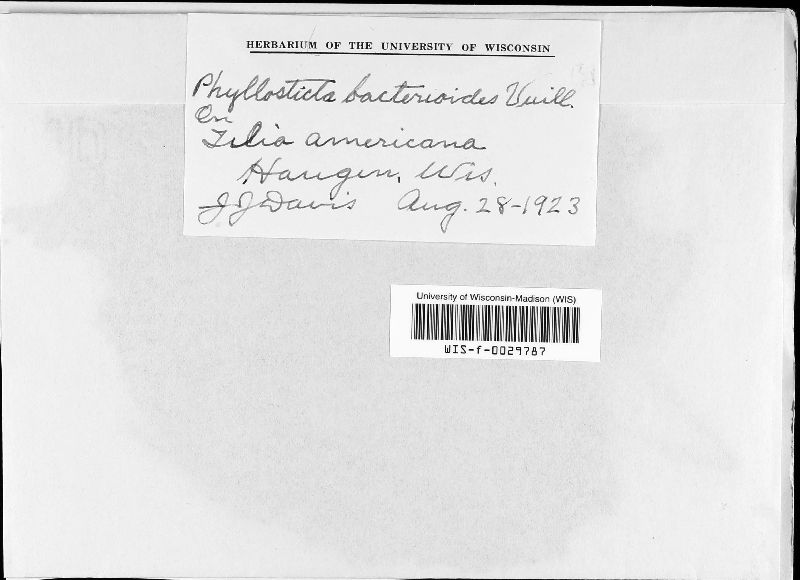 HERBARIUM OF THE UNIVERSITY OF WISCONSIN
Phyllosticta bacterioides Vuill.
On
Tilia americana
Haugen, Wis.
J J Davis Aug. 28-1923
University of Wisconsin-Madison (WIS)
WIS-f-0029787